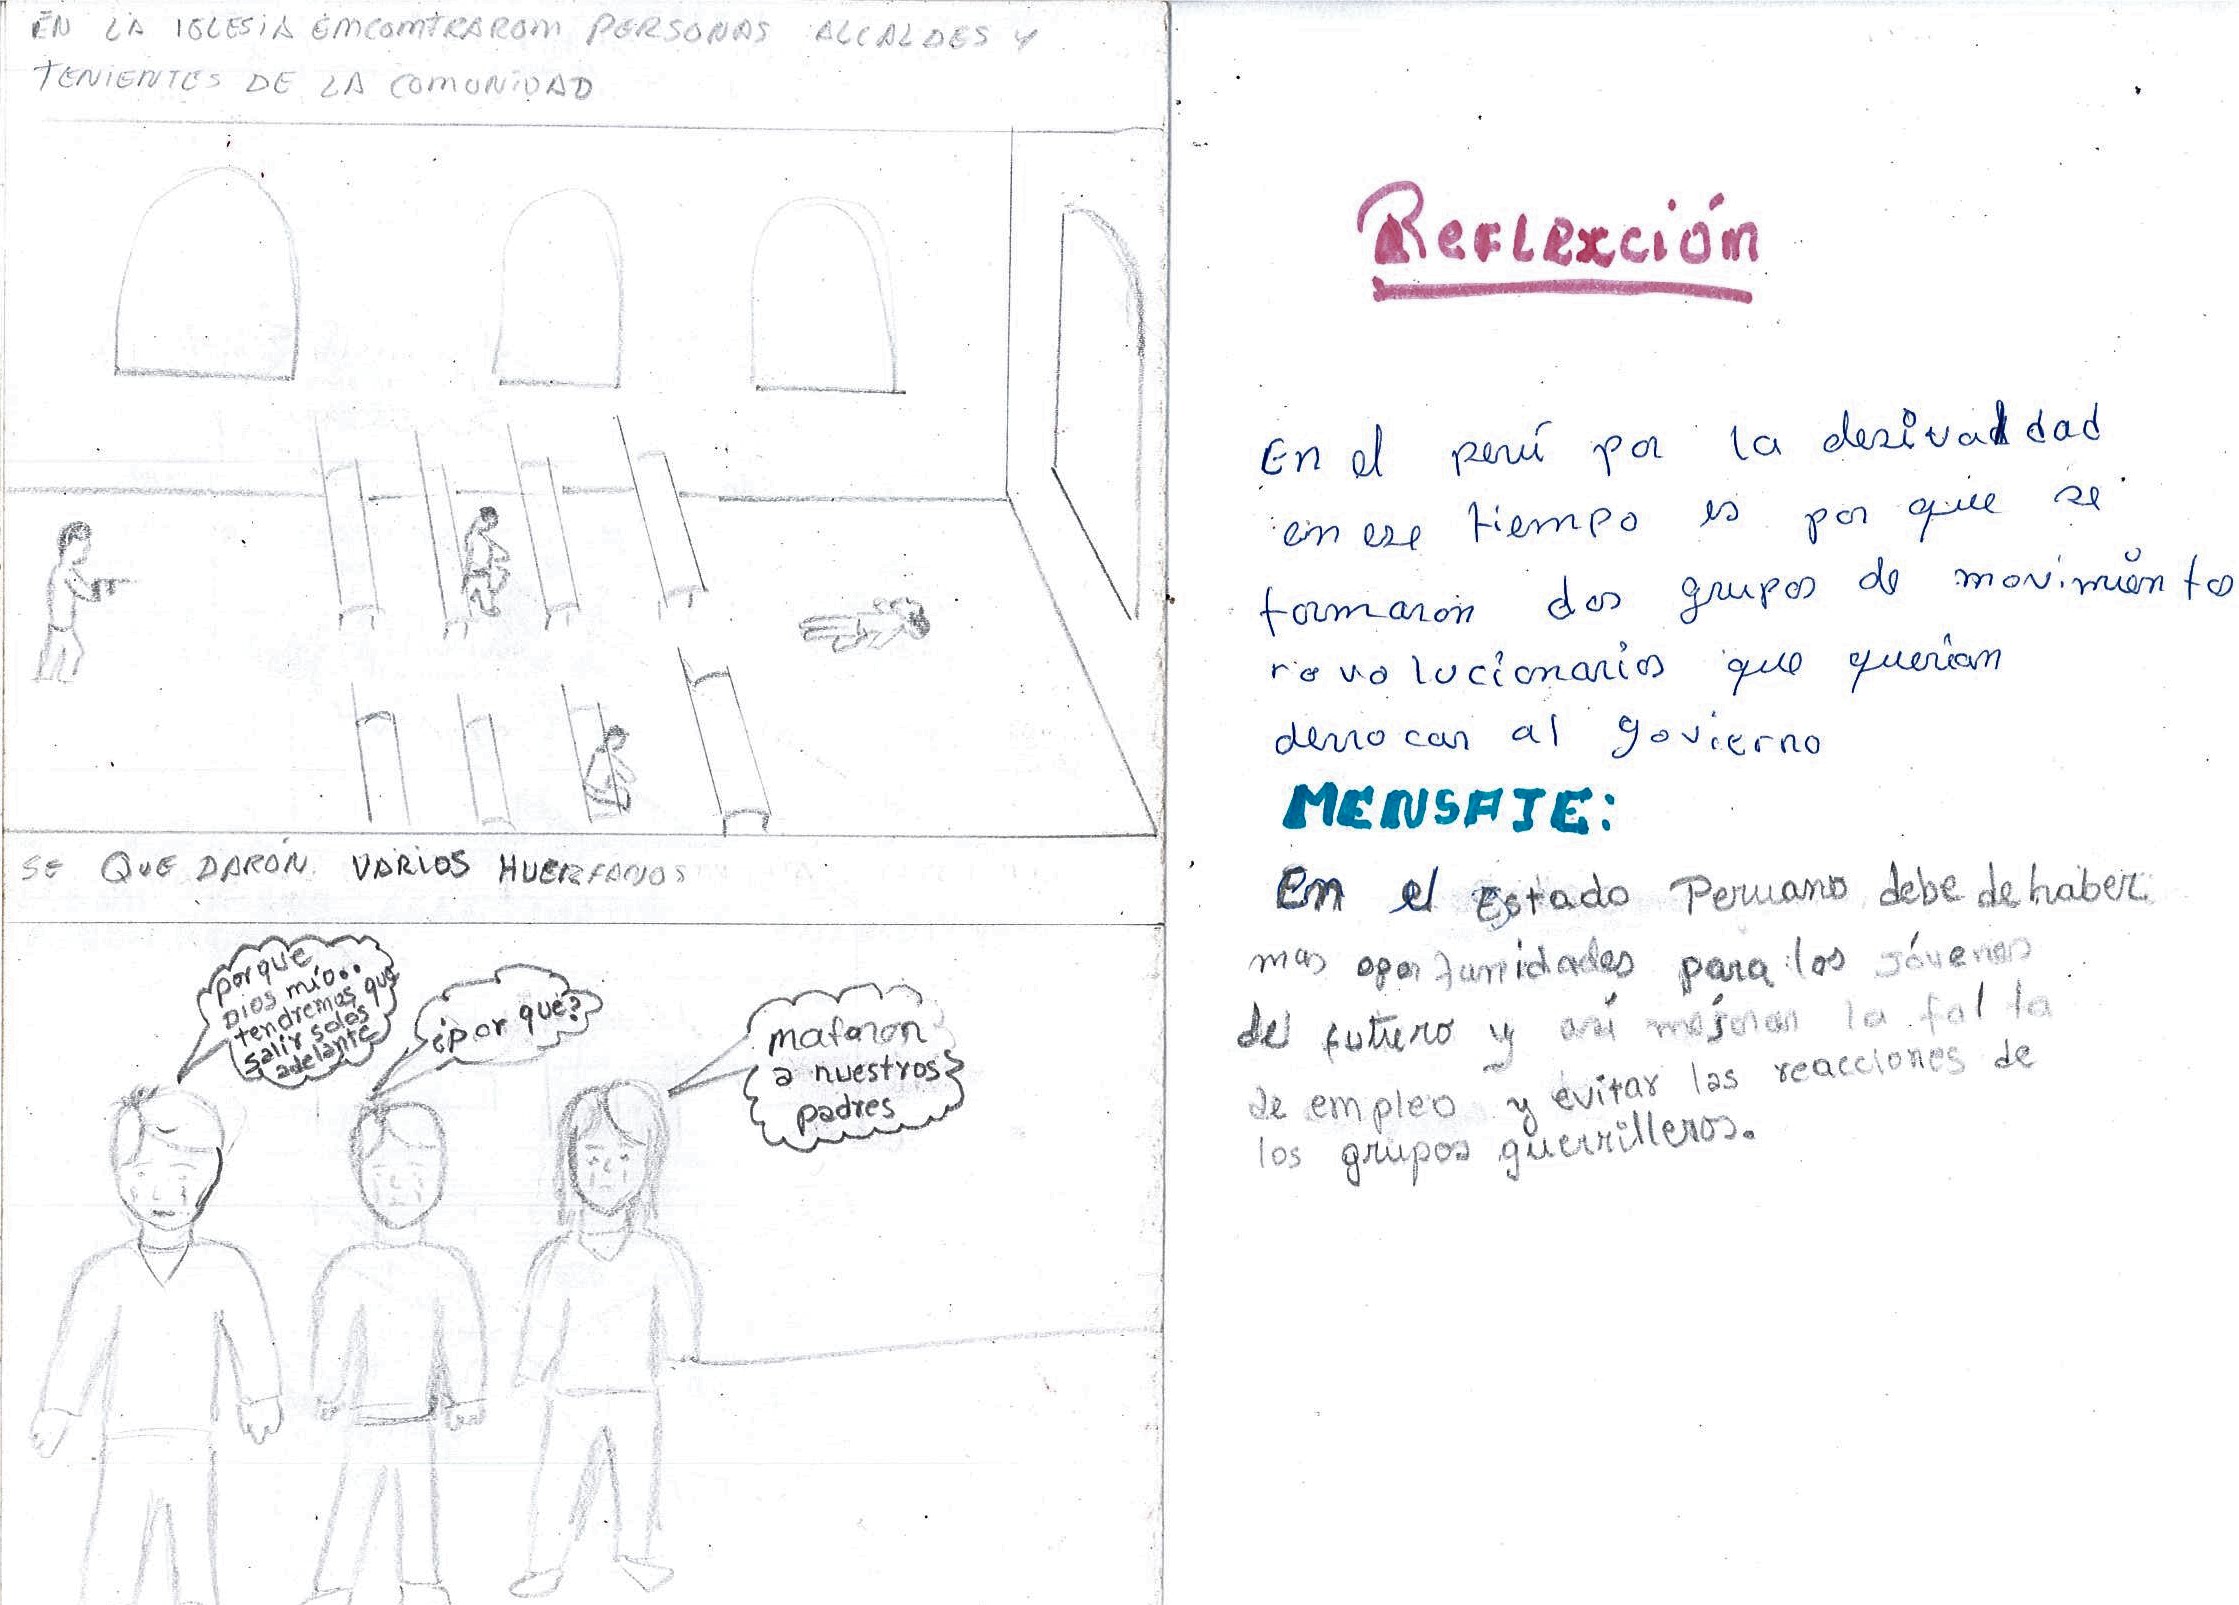 EN LA IGLESIA EMCOMTRAROM PERSONAS ALCALDES Y
TENIENTES DE LA COMUNIDAD
SE QUE DARÓN VARIOS HUERFANOS
porque
DIOS mío..
tendremos que
salir solos
adelante
¿por qué?
mataron
a nuestros
padres
Reflexción
En el perú por la
en ese tiempo es por que se
formaron dos grupos de movimiento
revolucionarios que querian
derrocar al govierno
MENSAJE:
En el Estado Peruano debe de haber
mas oportunidades para los jóvenes
del futuro y así mejorar la falta
de empleo y evitar las reacciones de
los grupos guerrilleros.